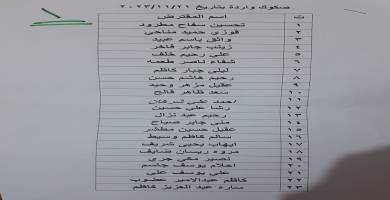 صكوك واردة بتاريخ ٢٠٢٣/١١/٢١
ت اسم المقترض
١ تحسين سفاح مطرود
٢ فوزي حميد مناحي
٣ واثق باسم عبيد
٤ زينب جابر فاخر
٥ علي رحيم خلف
٦ شفاء ناصر طعمه
٧ ليلى جبار كاظم
٨ رحيم هاشم حسن
٩ عقيل مزهر وحيد
١٠ سعد ظاهر فالح
١١ احمد علي
١٢ رشا علي حسين
١٣ رحيم عبد نزال
١٤ منى جابر صباح
١٥ عقيل حسين مطشر
١٦ سالم كاظم وسيط
١٧ ايهاب يحيى شريف
١٨ مروه ريسان ضايف
١٩ نصير مكي جري
٢٠ احلام يوسف جاسم
٢١ علي يوسف علي
٢٢ كاظم عبدالامير غضوب
٢٣ ساره عبد العزيز كاظم